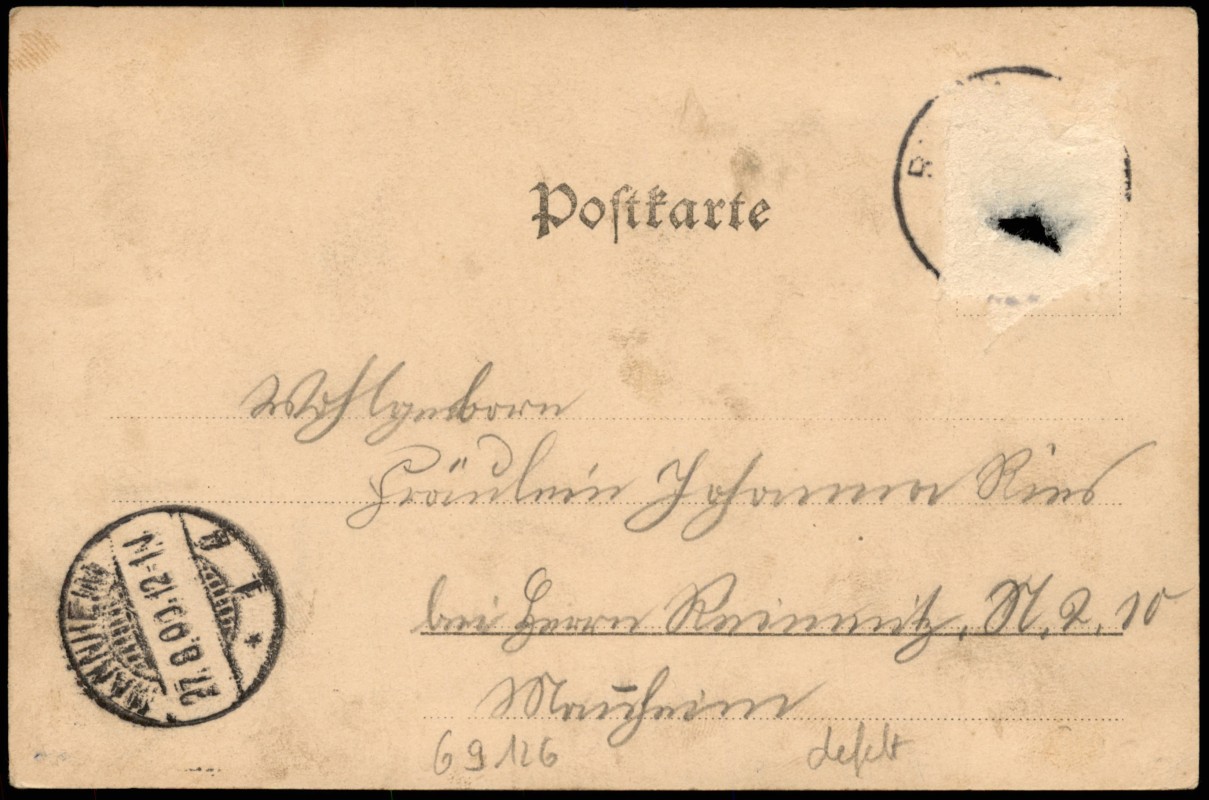 Postkarte
Wohlgeborn
Fräulein Johanna Ries
bei Herrn Reimnitz, N. 2. 10
Mannheim
MANNHEIM
27.8.00.12-1N
69126
defekt